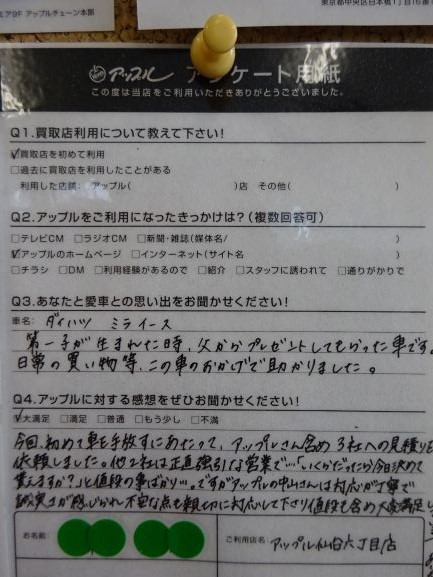 ミア9F アップルチェーン本部
東京都中央区日本橋1丁目16番
アップル アンケート用紙
この度は当店をご利用いただきありがとうございました。
Q1.買取店利用について教えて下さい!
☑買取店を初めて利用
□過去に買取店を利用したことがある
利用した店舗: アップル( )店 その他( )
Q2.アップルをご利用になったきっかけは?(複数回答可)
□テレビCM □ラジオCM □新聞・雑誌(媒体名/ )
☑アップルのホームページ □インターネット(サイト名 )
□チラシ □DM □利用経験があるので □紹介 □スタッフに誘われて □通りがかりで
Q3.あなたと愛車との思い出をお聞かせください!
車名: ダイハツ ミライース
第一子が生まれた時、父からプレゼントしてもらった車です。
日常の買い物等、この車のおかげで助かりました。
Q4.アップルに対する感想をぜひお聞かせください!
☑大満足 □満足 □普通 □もう少し □不満
今回、初めて車を手放すにあたって、アップルさん含め3社への見積りを
依頼しました。他2社は正直強引な営業で…「いくらだったら今日決めて
貰えますか?」と値段の事ばかり…。ですがアップルの中山さんは対応が丁寧で
誠実さが感じられ不安な点も親切に対応して下さり値段も含め大変満足し
お名前
ご利用店名 アップル仙台六丁目店